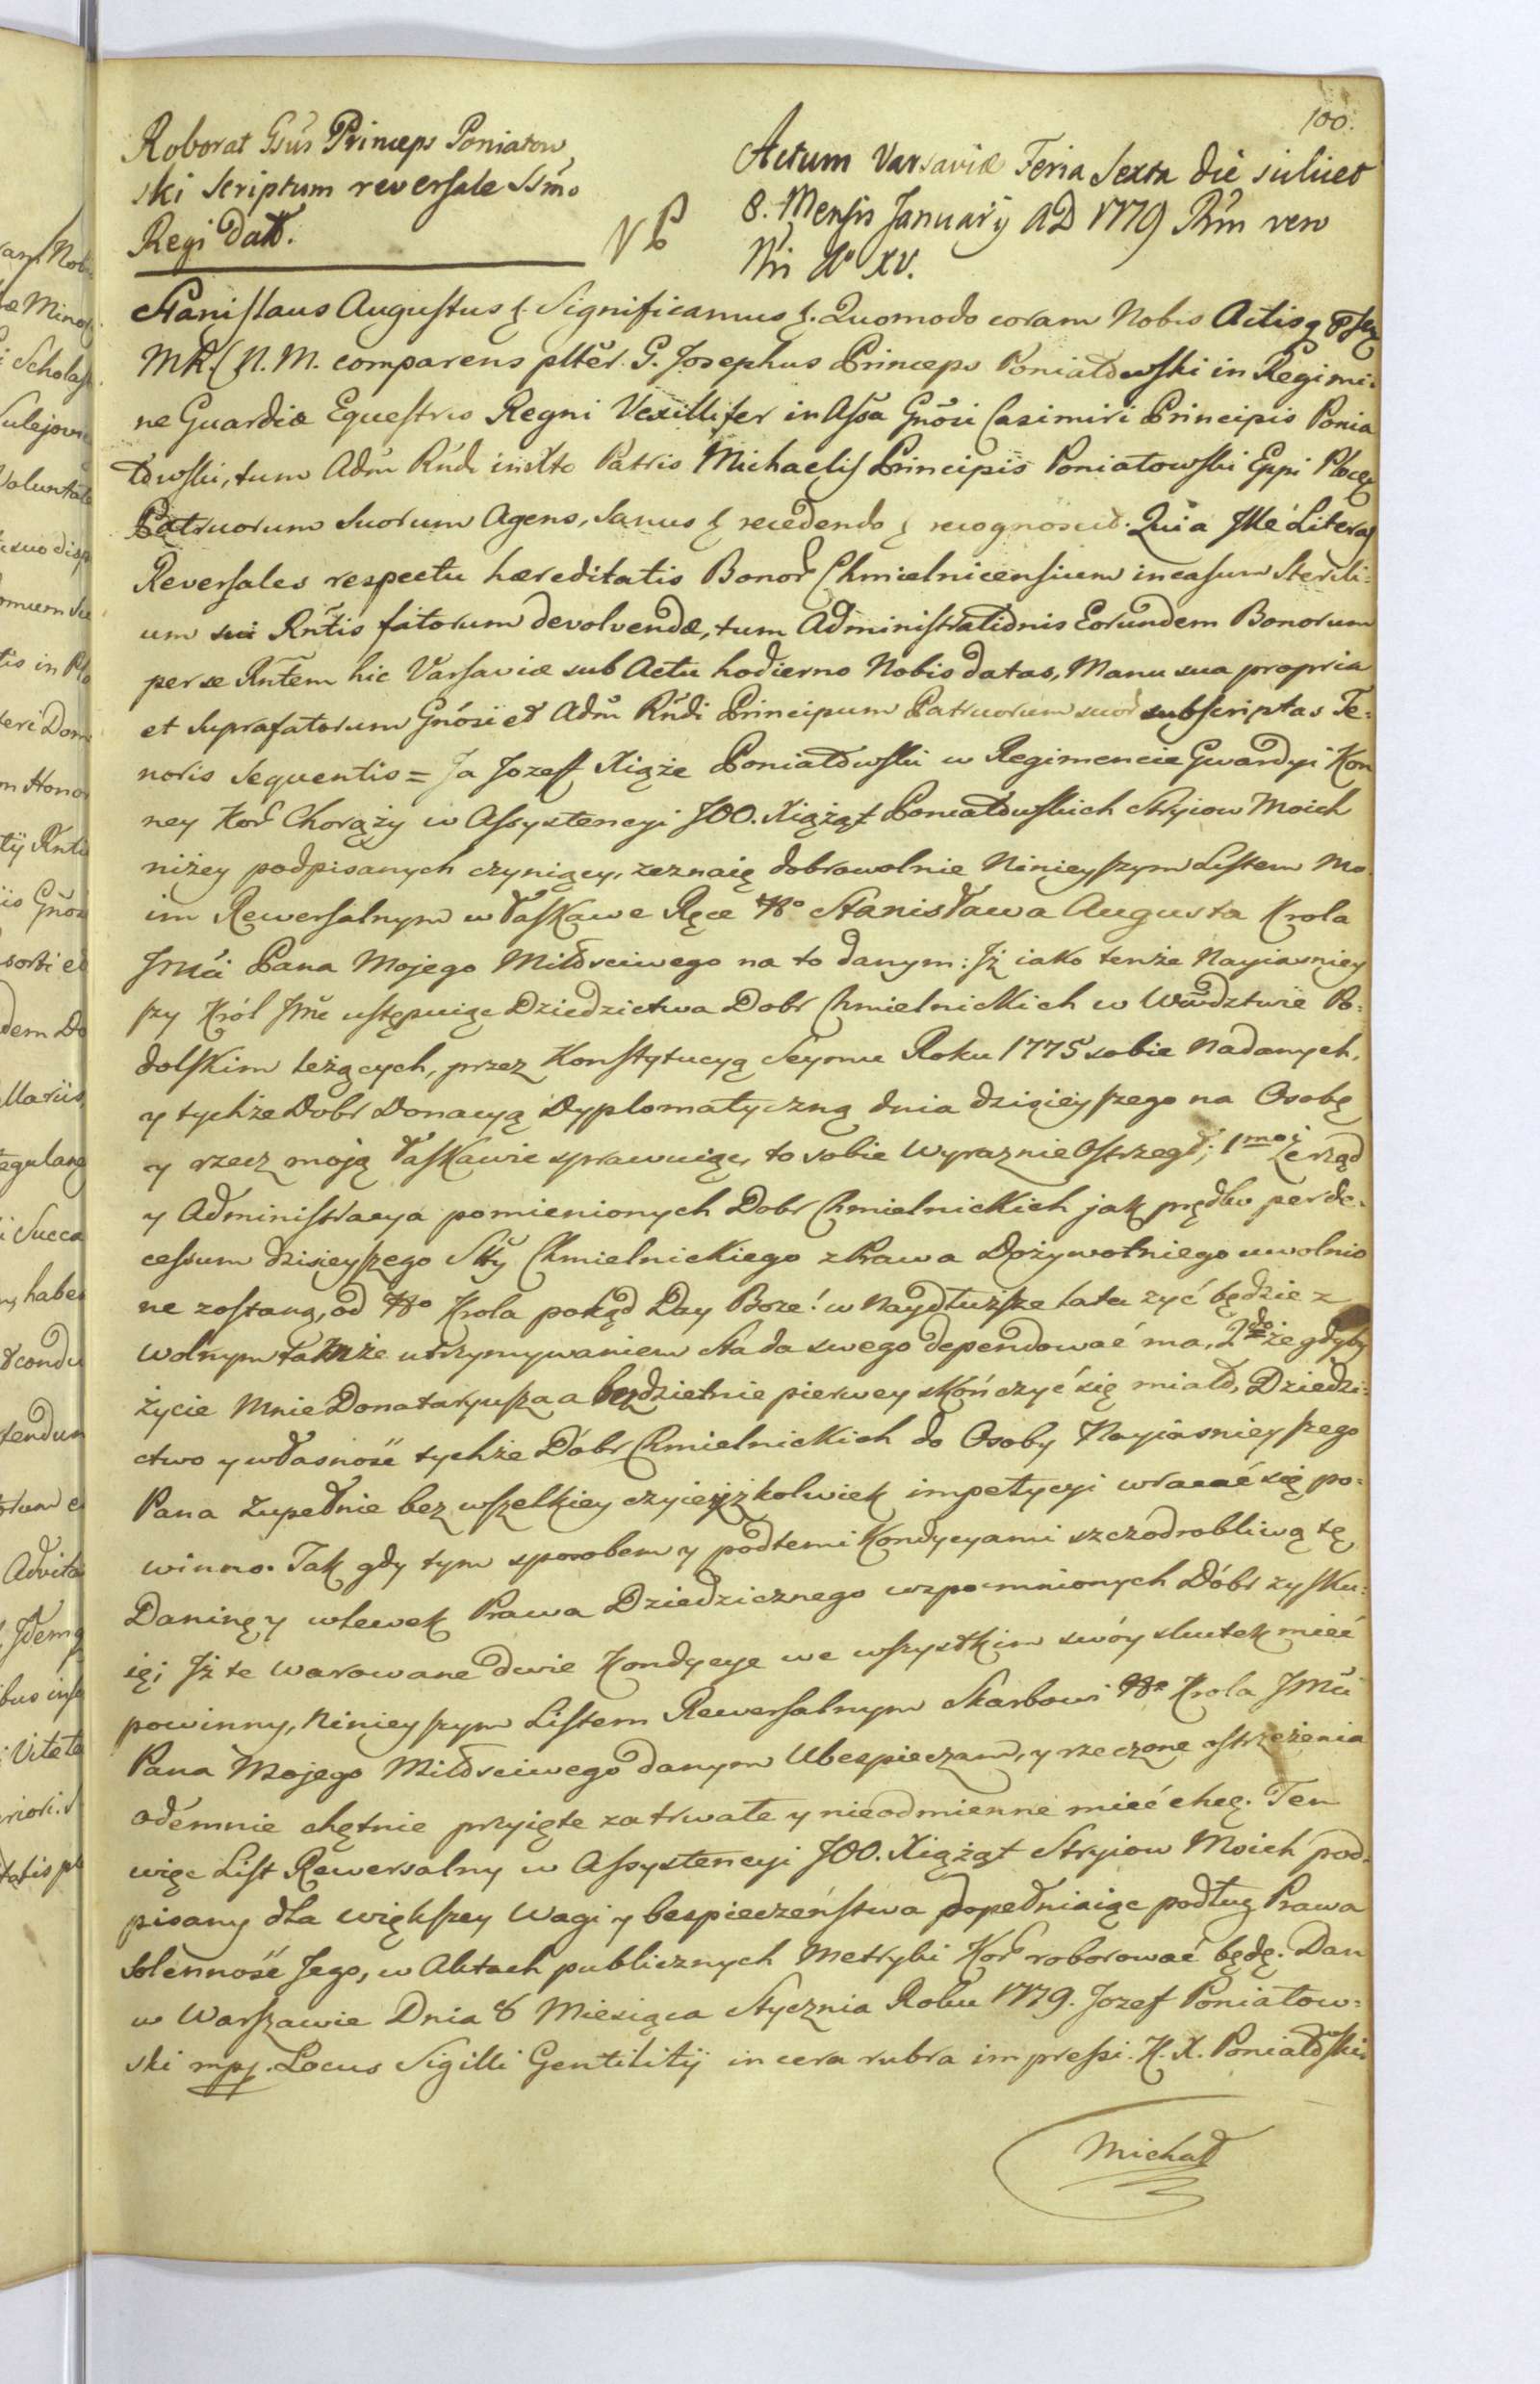 100.
Roborat Gsus Princeps Poniatow
ski Scriptum reversale SSmo
Regi Datt.
NB
Actum Varsaviæ Feria Sexta die scilicet
8. Mensis Januarij AD 1779 Rñi vero
Nri Aº XV.
Stanislaus Augustus &. Significamus &. Quomodo coram Nobis Actisq
MR. C. N. M. comparens plter. G. Josephus Princeps Poniatowski in Regimi:
ne Guardiæ Equestris Regni Vexillifer in Assa Gnosi Casimiri Principis Ponia
towski, tum Adm Rndi in Xto Patris Michaelis Principis Poniatowski Eppi Plocen
Patruorum Suorum Agens, Sanus & recedendo & recognovit. Quia Ille Literas
Reversales respectu hæreditatis Bonor Chmielnicensium in casum Sterili:
um sui Rntis fatorum devolvendæ, tum Administrationis Eorundem Bonorum
per se Rntem hic Varsaviæ sub Actu hodierno Nobis datas, Manu sua propria
et Suprafatorum Gnosi et Adm Rndi Principum Patruorum suor subscriptas Te:
noris Sequentis = Ja Jozeff Xiąże Poniatowski w Regimencie Gwardyi Kon
ney Kor Chorąży w Assystencyi JOO. Xiążąt Poniatowskich Stryiow Moich
niżey podpisanych czyniący, zeznaię dobrowolnie Ninieyszym Listem Mo
im Rewersalnym w Łaskawe Ręce Stanisława Augusta Krola
Jmci Pana Mojego Miłościwego na to danym: Jż iako tenże Nayiasniey
szy Król Jmć ustępuiąc Dziedzictwa Dobr Chmielnickich w Wwdztwie Po:
dolskim leżących, przez Konstytucyą Seymu Roku 1775 sobie Nadanych,
y tychże Dobr Donacyą Dyplomatyczną dnia dzisieyszego na Osobę
y rzecz moją łaskawie sprawuiąc, to sobie Wyraznie Ostrzegł; 1mo Że rząd
y Administracya pomienionych Dobr Chmielnickich jak prędko per de:
cessum dzisieyszego Stty Chmielnickiego z Prawa Dożywotniego uwolnio
ne zostaną, od Krola pokąd Day Boże! w Naydłuższe lata żyć będzie z
wolnym tamże utrzymywaniem Stada swego dependować ma, 2do że gdyby
życie Mnie Donataryusza a bezdzietnie pierwey skończyć się miało, Dziedzi:
ctwo y własność tychże Dóbr Chmielnickich do Osoby Nayiasnieyszego
Pana Zupełnie bez wszelkiey czyieyżkolwiek impetycyi wracać się po:
winno. Tak gdy tym sposobem y pod temi Kondycyami szczodrobliwą tę
Daninę y wlewek Prawa Dziedzicznego wspomnionych Dóbr zysku:
ię; Jż te warowane dwie Kondycye we wszystkim swóy skutek mieć
powinny, Ninieyszym Listem Rewersalnym Skarbowi Krola JMci
Pana Mojego Miłościwego danym Ubespieczam, y rzeczone ostrzeżenia
odemnie chętnie przyięte za trwałe y nieodmienne mieć chcę. Ten
więc List Rewersalny w Assystencyi JOO. Xiążąt Stryiow Moich pod:
pisany dla większey Wagi y bespieczeństwa dopełniaiąc podług Prawa
Solenność Jego, w Aktach publicznych Metryki Kor roborować będę. Dan
w Warszawie Dnia 8 Miesiąca Stycznia Roku 1779. Jozef Poniatow:
ski mpp. Locus Sigilli Gentilitij in cera rubra impressi. K. X. Poniatowski.
Michał